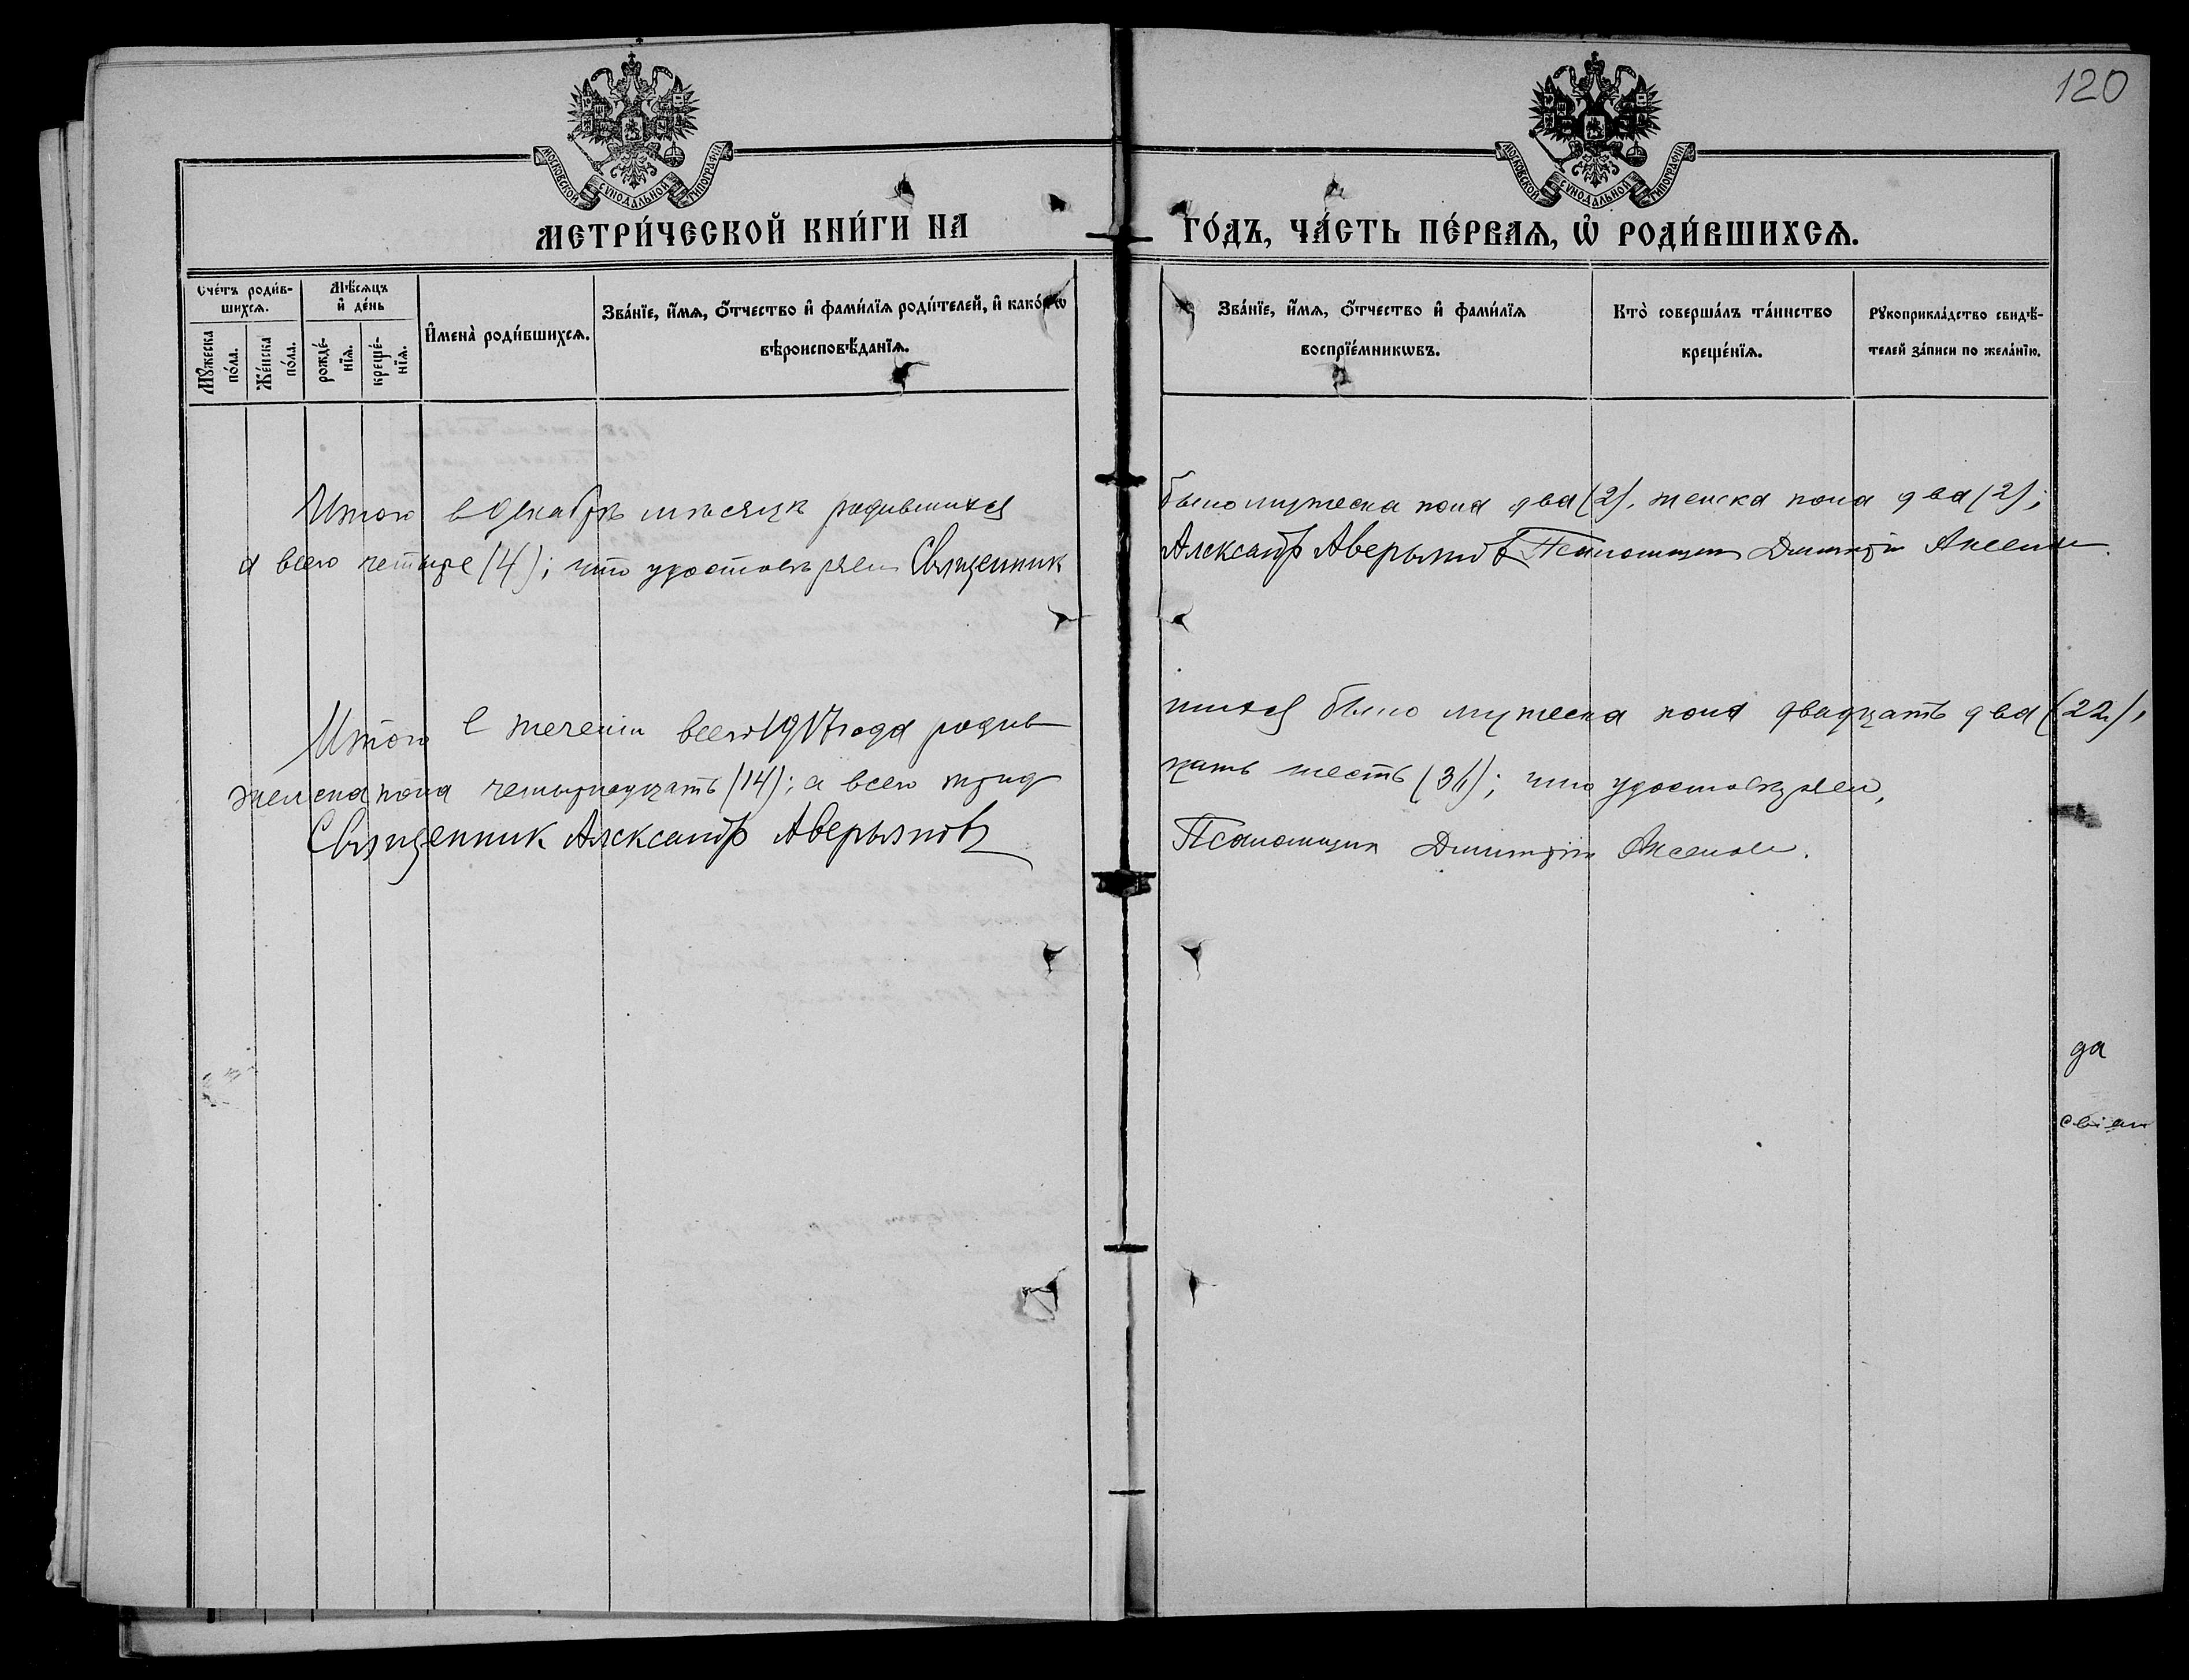 120
МОСКОВСКОЙ СѴНОДАЛЬНОЙ ТИПОГРАФІИ
МОСКОВСКОЙ СѴНОДАЛЬНОЙ ТИПОГРАФІИ
МЕТРИ́ЧЕСКОЙ КНИ́ГИ НА ГО́ДЪ, ЧА́СТЬ ПЕ́РВАѦ, Ѡ҆ РОДИ́ВШИХСѦ.
Сче́тъ роди́в-
шихсѧ.
Мꙋ́жеска по́ла.
Же́нска по́ла.
Мѣ́сѧцъ
и҆ де́нь
рожде́-
нїѧ.
креще́-
нїѧ.
И҆мена̀ роди́вшихсѧ.
Зва́нїе, и҆́мѧ, ѻ҆́тчество и҆ фами́лїѧ роди́телей, и҆ како́гѡ
вѣроисповѣ́данїѧ.
Зва́нїе, и҆́мѧ, ѻ҆́тчество и҆ фами́лїѧ
воспрїе́мникѡвъ.
Кто̀ соверша́лъ та́инство
креще́нїѧ.
Рꙋкоприкла́дство свидѣ́-
телей за́писи по жела́нїю.
Итого в Декабрѣ мѣсяцѣ родившихся было мужеска пола два (2), женска пола два (2);
а всего четыре (4); что удостовѣряем Священник Александр Аверьянов Псаломщик Димитрій Аксенов.
Итого в теченіи всего 1917 года родив шихся было мужеска пола двадцать два (22),
женска пола четырнадцать (14); а всего трид цать шесть (36); что удостовѣряем,
Священник Александр Аверьяновъ Псаломщик Димитрій Аксенов.
да